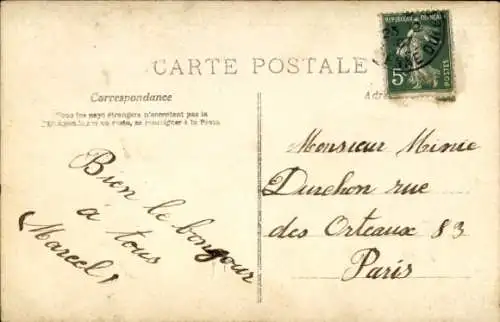 CARTE POSTALE
REPUBLIQUE FRANÇAISE
5c
POSTES
Correspondance
Adre
Tous les pays étrangers n'acceptent pas la
se renseigner à la Poste
Bien le bonjour
à tous
Marcel
Monsieur Minie
Durchon rue
des Orteaux 83
Paris